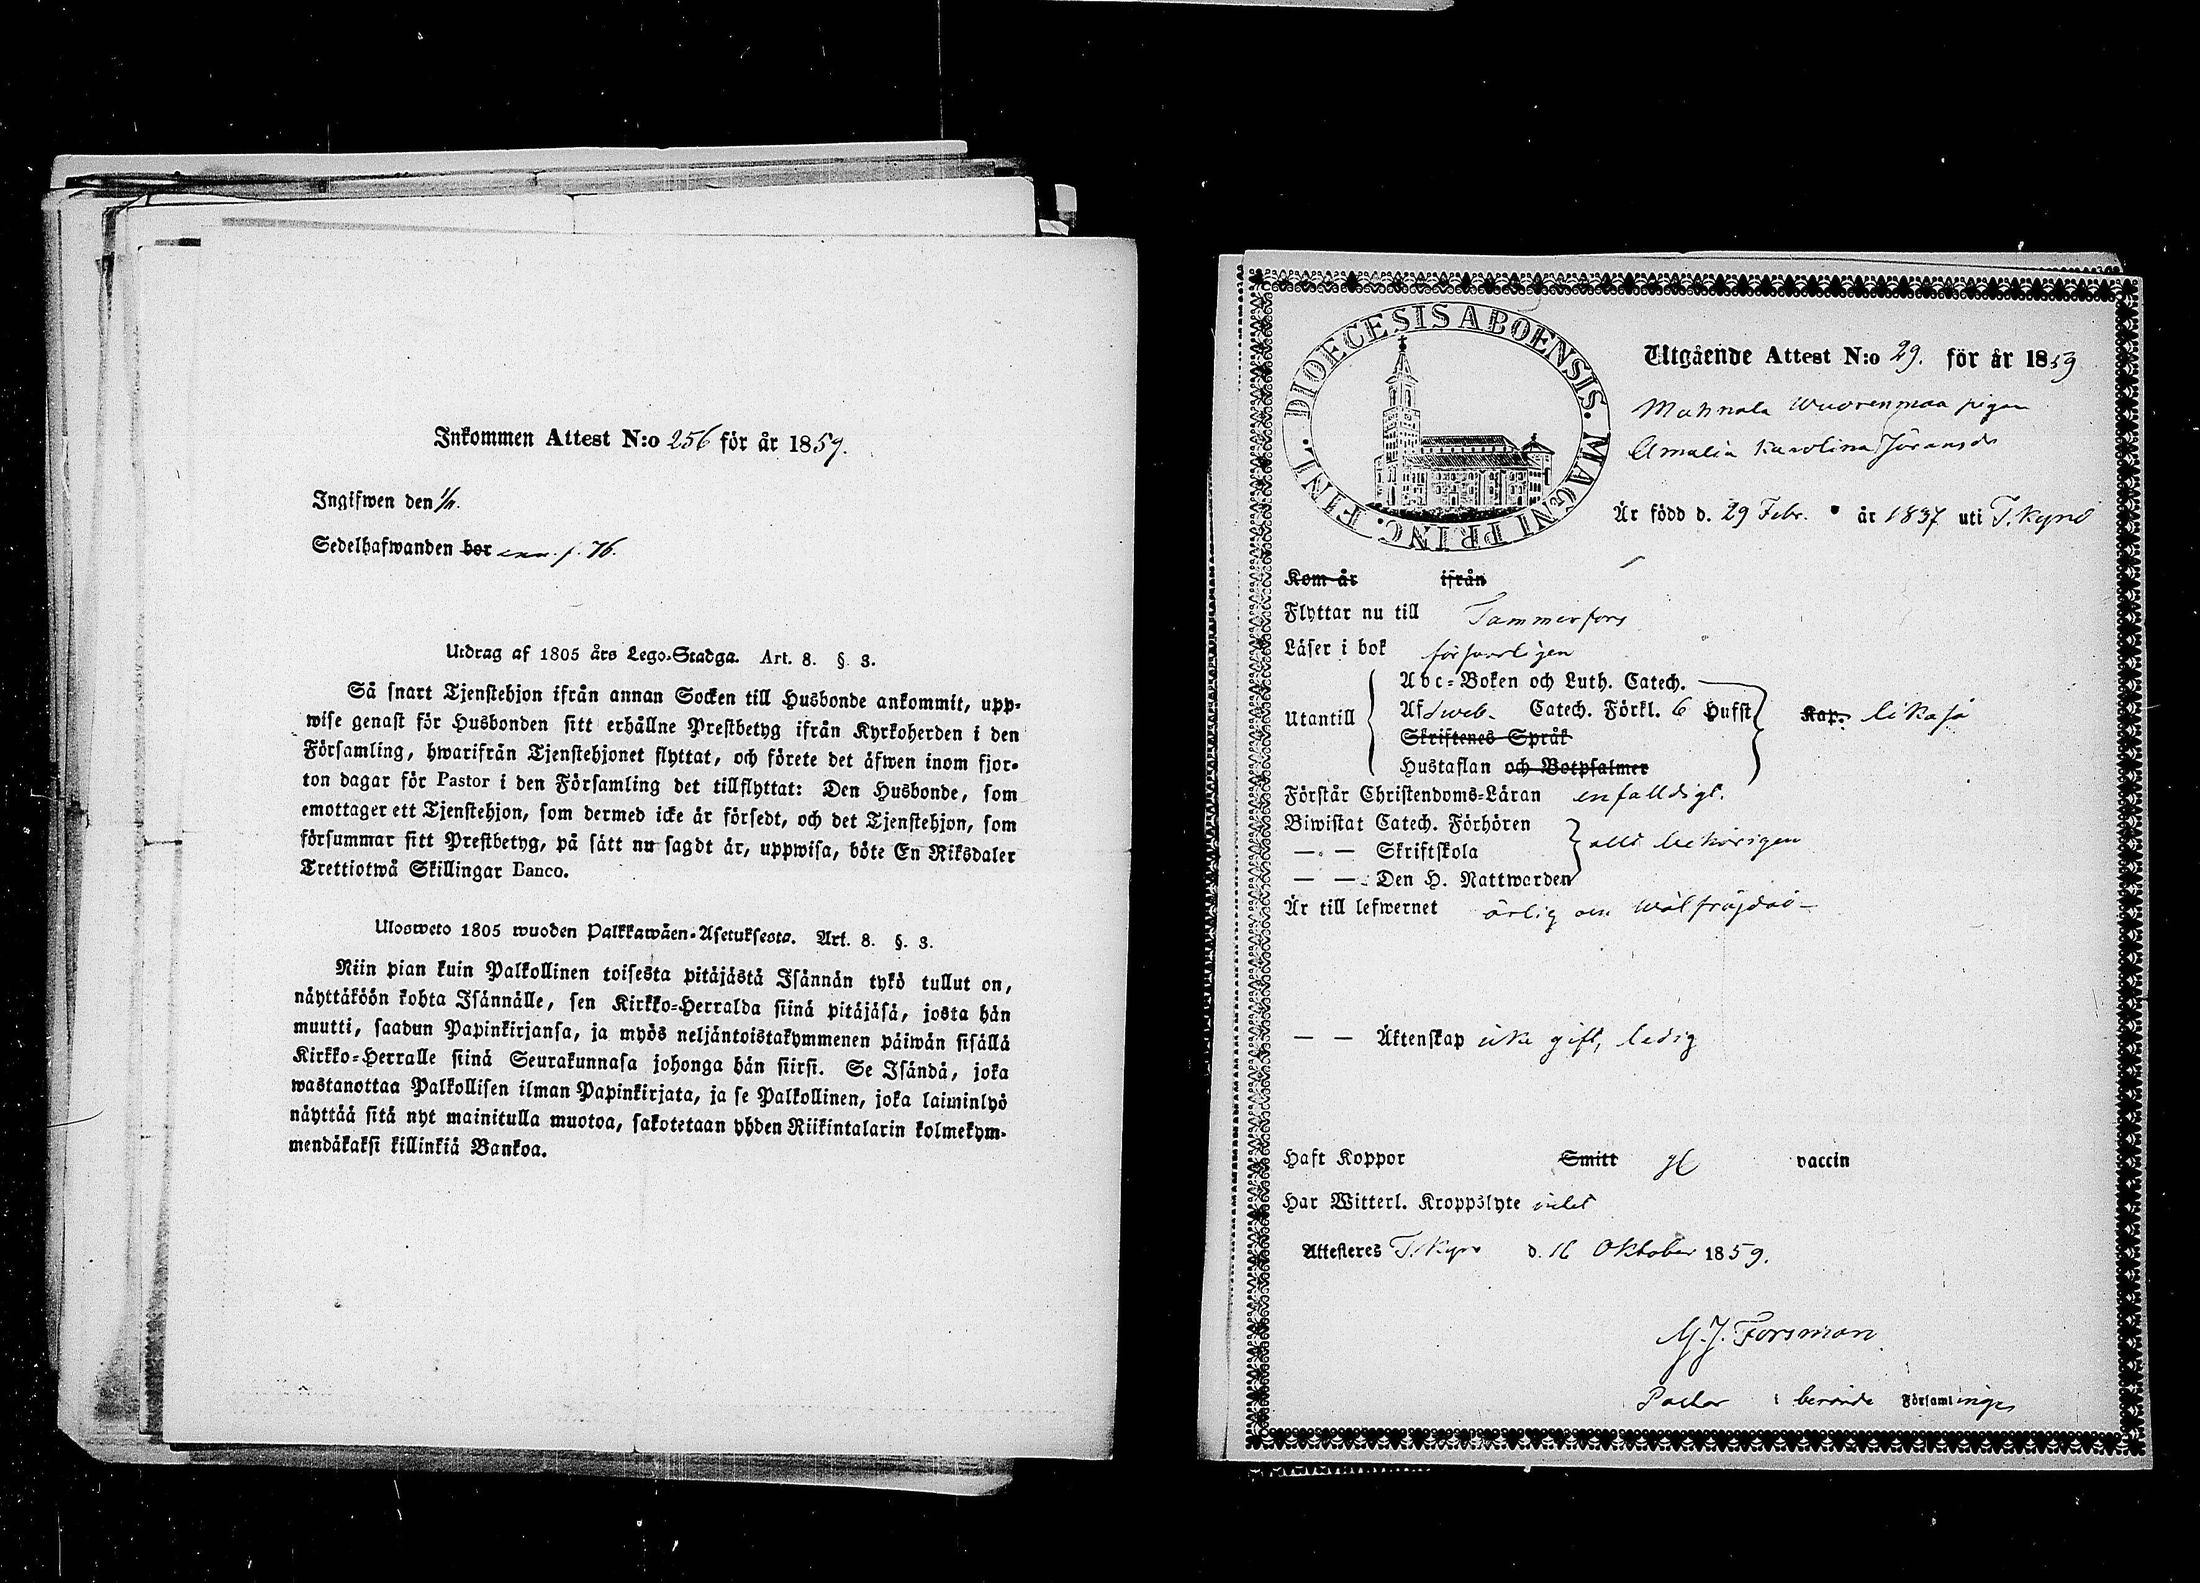 Inkommen Attest N:o 256 för år 1859.
Ingifwen den
Sedelhafwanden bor inn. f. 76.
Utdrag af 1805 års Lego-Stadga. Art. 8. § 3.
Så snart Tjenstehjon ifrån annan Socken till Husbonde ankommit, upp-
wise genast för Husbonden sitt erhållne Prestbetyg ifrån Kyrkoherden i den
Församling, hwarifrån Tjenstehjonet flyttat, och förete det äfwen inom fjor-
ton dagar för Pastor i den Församling det tillflyttat: Den Husbonde, som
emottager ett Tjenstehjon, som dermed icke är försedt, och det Tjenstehjon, som
försummar sitt Prestbetyg, på sätt nu sagdt är, uppwisa, böte En Riksdaler
Trettiotwå Skillingar Banco.
Ulosweto 1805 wuoden Palkkawäen-Asetuksesta. Art. 8. §. 3.
Niin pian kuin Palkollinen toisesta pitäjästä Isännän tykö tullut on,
näyttäköön kohta Isännälle, sen Kirkko-Herralda siinä pitäjäsä, josta hän
muutti, saadun Papinkirjansa, ja myös neljäntoistakymmenen päiwän sisällä
Kirkko-Herralle siinä Seurakunnasa johonga hän siirsi. Se Isändä, joka
wastanottaa Palkollisen ilman Papinkirjata, ja se Palkollinen, joka laiminlyö
näyttää sitä nyt mainitulla muotoa, sakotetaan yhden Riikintalarin kolmekym-
mendäkaksi killinkiä Bankoa.
DIOECESIS ABOENSIS. MAGNI PRINC. FINL.
Utgående Attest N:o 29. för år 1859
Mahnala Wuorenmaa pigan
Amalia Karolina Jöransdr
Är född d. 29 Febr. år 1837 uti T.kyrö
Kom år ifrån
Flyttar nu till Tammerfors
Läser i bok försvarligen
Abc-Boken och Luth. Catech.
Utantill Af Sweb. Catech. Förkl. 6 Hufst Kap. likaså
Skriftenes Språk
Hustaflan och Botpsalmer
Förstår Christendoms-Läran enfalldigt.
Biwistat Catech. Förhören
— — Skriftskola allt behörigen
— — Den H. Nattwarden
Är till lefwernet ärlig och wälfräjdad
— — Äktenskap icke gift, ledig
Haft Koppor Smitt vaccin
Har Witterl. Kroppslyte intet
Attesteres T.Kyro d. 16 Oktober 1859.
M. J. Forsman
Pastor i berörde Församlinge